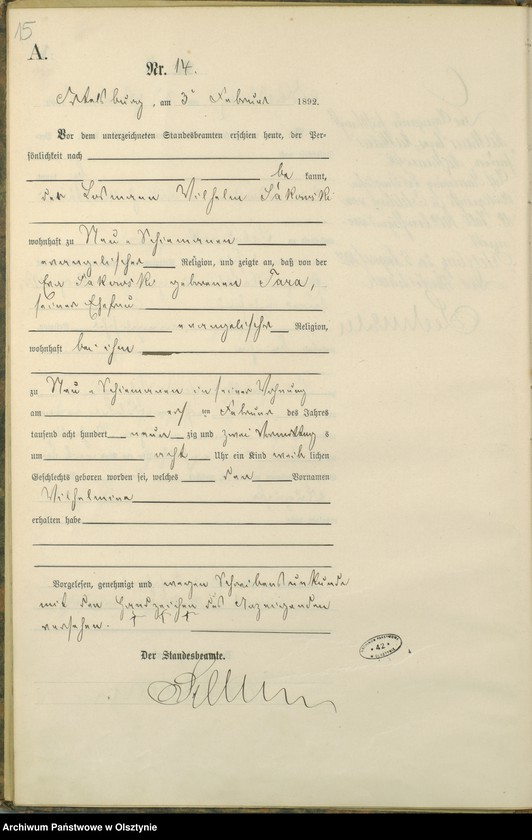 15
A.
Nr. 14.
Ortelsburg, am 3ᵗ Februar 1892.
Vor dem unterzeichneten Standesbeamten erschien heute, der Per-
sönlichkeit nach
be kannt,
der Losmann Wilhelm
wohnhaft zu Neu-Schiemanen
evangelischer Religion, und zeigte an, daß von der
Eva geborenen Zara,
seiner Ehefrau
evangelischer Religion,
wohnhaft bei ihm
zu Neu-Schiemanen in seiner Wohnung
am Februar des Jahres
tausend acht hundert neun zig und zwei Vormittag s
um acht Uhr ein Kind weib lichen
Geschlechts geboren worden sei, welches den Vornamen
Wilhelmine
erhalten habe
Vorgelesen, genehmigt und wegen Schreibensunkunde
mit den Handzeichen des Anzeigenden
versehen. † † †
Der Standesbeamte.
42
Archiwum Państwowe w Olsztynie